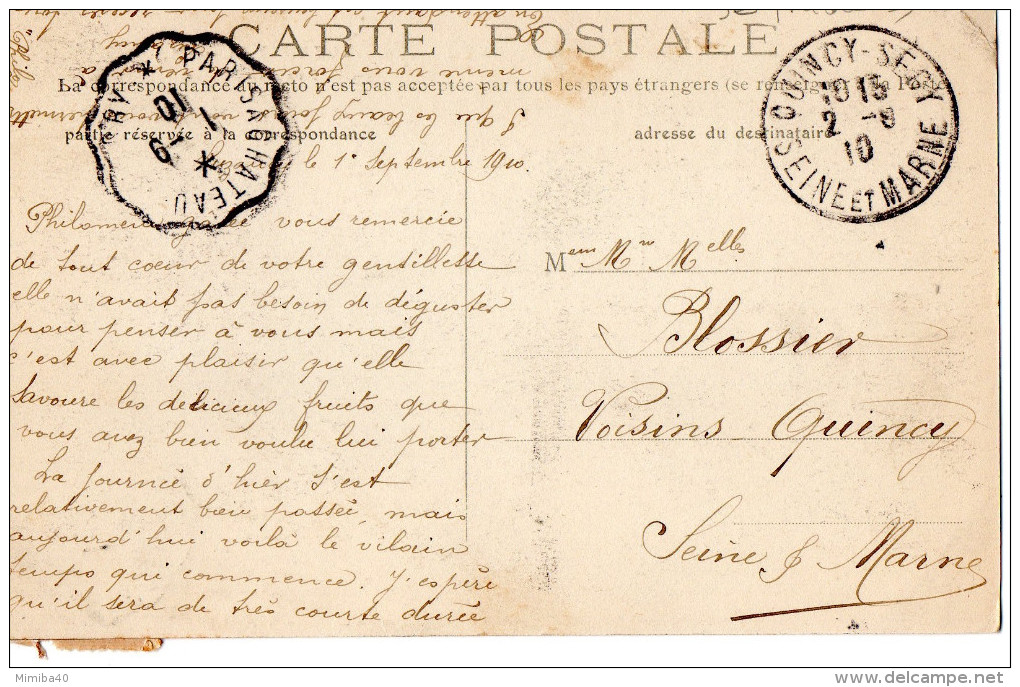 CARTE POSTALE
La correspondance au recto n'est pas acceptée par tous les pays étrangers (se renseigner à la Poste
partie réservée à la correspondance
adresse du destinataire
le 1er Septembre 1910.
Philomène vous remercie
de tout coeur de votre gentillesse
elle n'avait pas besoin de déguster
pour penser à vous mais
c'est avec plaisir qu'elle
savoure les delicieux fruits que
vous avez bien voulu lui porter
La journée d'hier s'est
relativement bien passée, mais
aujourd'hui voilà le vilain
temps qui commence. J'espère
qu'il sera de très courte durée
que les beaux jours
même vous
en attendant
M
Mr Melle
Blossier
Voisins Quincy
Seine & Marne
QUINCY-SEGY
10 15
2 -9
10
SEINE ET MARNE
Mimiba40
delcampe.net